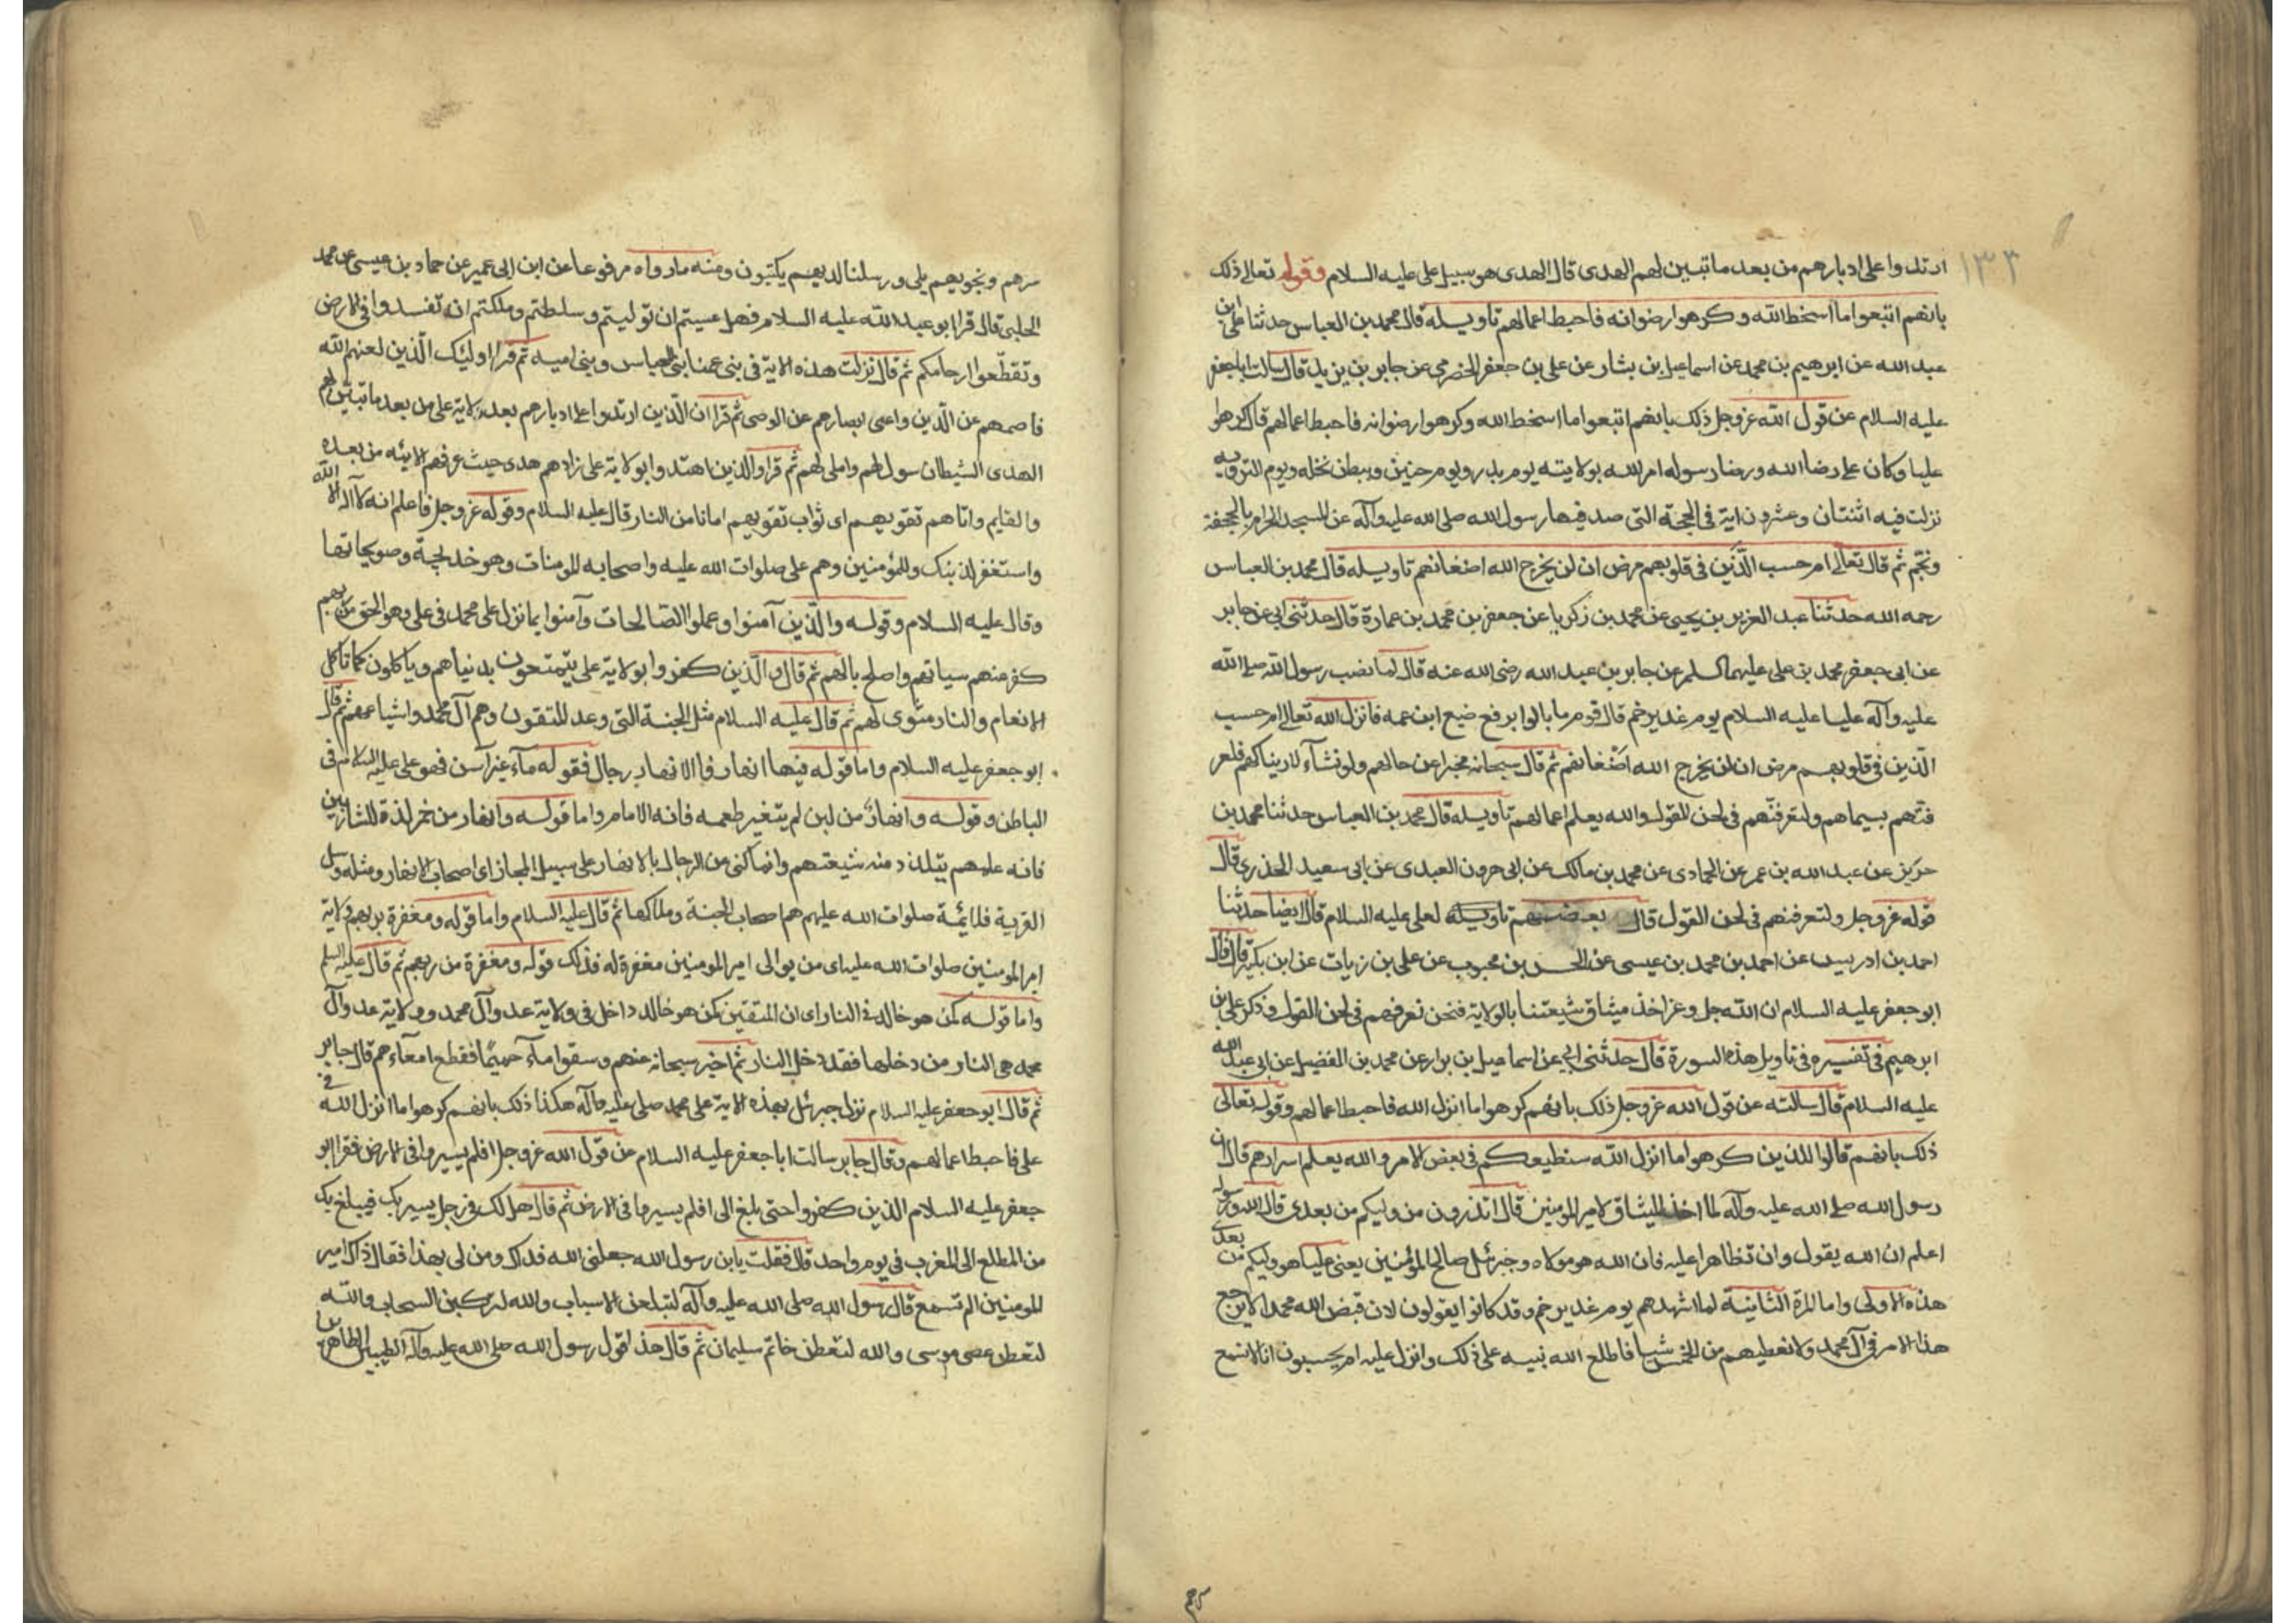 ١٣٣
ارتدوا على ادبارهم من بعد ما تبين لهم الهدى قال الهدى هو سبيل على عليه السلام وقوله تعالى ذلك
بانهم اتبعوا ما اسخط الله وكرهوا رضوانه فاحبط اعمالهم تاويله قال محمد بن العباس حدثنا على بن
عبد الله عن ابرهيم بن محمد عن اسماعيل بن بشار عن على بن جعفر الحضرمى عن جابر بن يزيد قال سالت ابا جعفر
عليه السلام عن قول الله عز وجل ذلك بانهم اتبعوا ما اسخط الله وكرهوا رضوانه فاحبط اعمالهم قال كرهوا
عليا وكان على رضا الله ورضا رسوله امر الله بولايته يوم بدر ويوم حنين وببطن نخله ويوم التروية
نزلت فيه اثنتان وعشرون اية فى الحجة التى صد فيها رسول الله صلى الله عليه وآله عن المسجد الحرام بالجحفة
وبخم ثم قال تعالى ام حسب الّذين فى قلوبهم مرض ان لن يخرج الله اضغانهم تاويله قال محمد بن العباس
رحمه الله حدثنا عبد العزيز بن يحيى عن محمد بن زكريا عن جعفر بن محمد بن عمارة قال حدثنى ابى عن جابر
عن ابى جعفر محمد بن على عليهما السلم عن جابر بن عبد الله رضى الله عنه قال لما نصب رسول الله صلى الله
عليه وآله عليا عليه السلام يوم غدير خم قال قوم ما بالوا يرفع ضبع ابن عمه فانزل الله تعالى ام حسب
الذين فى قلوبهم مرض ان لن يخرج الله اضغانهم ثم قال سبحانه مخبرا عن حالهم ولو نشآء لاريناكهم فلعر
فتهم بسيماهم ولتعرفنّهم فى لحن القول والله يعلم اعمالهم تاويله قال محمد بن العباس حدثنا محمد بن
حريز عن عبد الله بن عمر عن الحمادى عن محمد بن مالك عن ابى هرون العبدى عن ابى سعيد الخدرى قال
قوله عز وجل ولتعرفنهم فى لحن القول قال بعضهم تاويله لعلى عليه السلام قال ايضا حدثنا
احمد بن ادريس عن احمد بن محمد بن عيسى عن الحسن بن محبوب عن على بن زيات عن ابن بكير قال قال
ابو جعفر عليه السلام ان الله جل وعز اخذ ميثاق شيعتنا بالولاية فنحن نعرفهم فى لحن القول وذكر على بن
ابرهيم فى تفسيره فى تاويل هذه السورة قال حدثنى ابى عن اسماعيل بن برار عن محمد بن الفضيل عن ابى عبد الله
عليه السلام قال سالته عن قول الله عز وجل ذلك بانهم كرهوا ما انزل الله فاحبط اعمالهم وقوله تعالى
ذلك بانهم قالوا للذين كرهوا ما انزل الله سنطيعكم فى بعض الامر والله يعلم اسرارهم قال ان
رسول الله صلى الله عليه وآله لما اخذ الميثاق لامير المومنين قال اتدرون من وليكم من بعدى قال الله ورسوله
اعلم ان الله يقول وان تظاهرا عليه فان الله هو مولاه وجبرئيل وصالح المؤمنين يعنى عليا هو وليكم من بعدى
هذه الاولى واما المرة الثانية لما اشهدهم يوم غدير خم وقد كانوا يقولون لان قبض الله محمدا لا يرجع
هذا الامر فى آل محمد ولا نعطيهم من الخمس شيا فاطلع الله نبيه على ذلك وانزل عليه ام يحسبون انا لا نسمع
سرهم ونجويهم بلى ورسلنا لديهم يكتبون ومنه ما رواه مرفوعا عن ابن ابى عمير عن حماد بن عيسى عن محمد
الحلبى قال قرا ابو عبد الله عليه السلام فهل عسيتم ان توليتم وسلطتم وملكتم ان تفسدوا فى الارض
وتقطّعوا ارحامكم ثم قال نزلت هذه الاية فى بنى عمنا بنى العباس وبنى اميه ثم قرا اوليك الّذين لعنهم الله
فاصمهم عن الّدين واعمى ابصارهم عن الوصى ثم قرا ان الّذين ارتدوا على ادبارهم بعد ولاية على من بعد ما تبيّن لهم
الهدى الشيطان سول لهم واملى لهم ثم قرا والذين اهتدوا بولاية على زادهم هدى حيث عرفهم الايمه من بعده
والقايم واتاهم تقويهم اى ثواب تقويهم امانا من النار قال عليه السلام وقوله عز وجل فاعلم انه لا آله الا الله
واستغفر لذنبك وللمؤمنين وهم على صلوات الله عليه واصحابه المومنات وهو خديجة وصويحباتها
وقال عليه السلام وقوله والّذين آمنوا وعملوا الصالحات وآمنوا بما نزل على محمد فى على وهو الحق من ربهم
كفر عنهم سياتهم واصلح بالهم ثم قال والّذين كفروا بولاية على يتمتعون بدنياهم وياكلون كما تاكل
الانعام والنار مثوى لهم ثم قال عليه السلام مثل الجنة التى وعد المتقون وهم آل محمد واشياعهم ثم قال
ابو جعفر عليه السلام واما قوله فيها انهار فالانهار رجال فقوله مآء غير آسن فهو على عليه السلام فى
الباطن وقوله وانهار من لبن لم يتغير طعمه فانه الامام واما قوله وانهار من خمر لذة للشاربين
فانه علمهم يتلذذ منه شيعتهم وانما كنى عن الرجال بالانهار على سبيل المجاز اى اصحاب الانهار ومثله وسل
القرية فلائمة صلوات الله عليهم هم اصحاب الجنة وملاكها ثم قال عليه السلام واما قوله ومغفرة من ربهم ولاية
امير المومنين صلوات الله عليه اى من يوالى امير المومنين مغفرة له فذلك قوله ومغفرة من ربهم ثم قال عليه السلم
واما قوله كمن هو خالد فى النار اى ان المتقين كمن هو خالد داخل فى ولاية عدو آل محمد وولاية عدو آل
محمد هى النار من دخلها فقد دخل النار ثم اخبر سبحانه عنهم وسقوا مآء حميمًا فقطع امعآءهم قال جابر
ثم قال ابو جعفر عليه السلام نزل جبرئيل بهذه الاية على محمد صلى عليه وآله هكذا ذلك بانهم كرهوا ما انزل الله فى
على فاحبط اعمالهم وقال جابر سالت ابا جعفر عليه السلام عن قول الله عز وجل افلم يسيروا فى الارض فقرا ابو
جعفر عليه السلام الذين كفروا حتى بلغ الى افلم يسيروا فى الارض ثم قال هل لك فى رجل يسير بك فيبلغ بك
من المطلع الى المغرب فى يوم واحد قال فقلت يابن رسول الله جعلنى الله فداك ومن لى بهذا فقال ذاك امير
المومنين الم تسمع قال رسول الله صلى الله عليه وآله لتبلغن الاسباب والله لتركبن السحاب والله
لتعطن عصى موسى والله لتعطن خاتم سليمان ثم قال هذا قول رسول الله صلى الله عليه وآله الطيبين الطاهرين